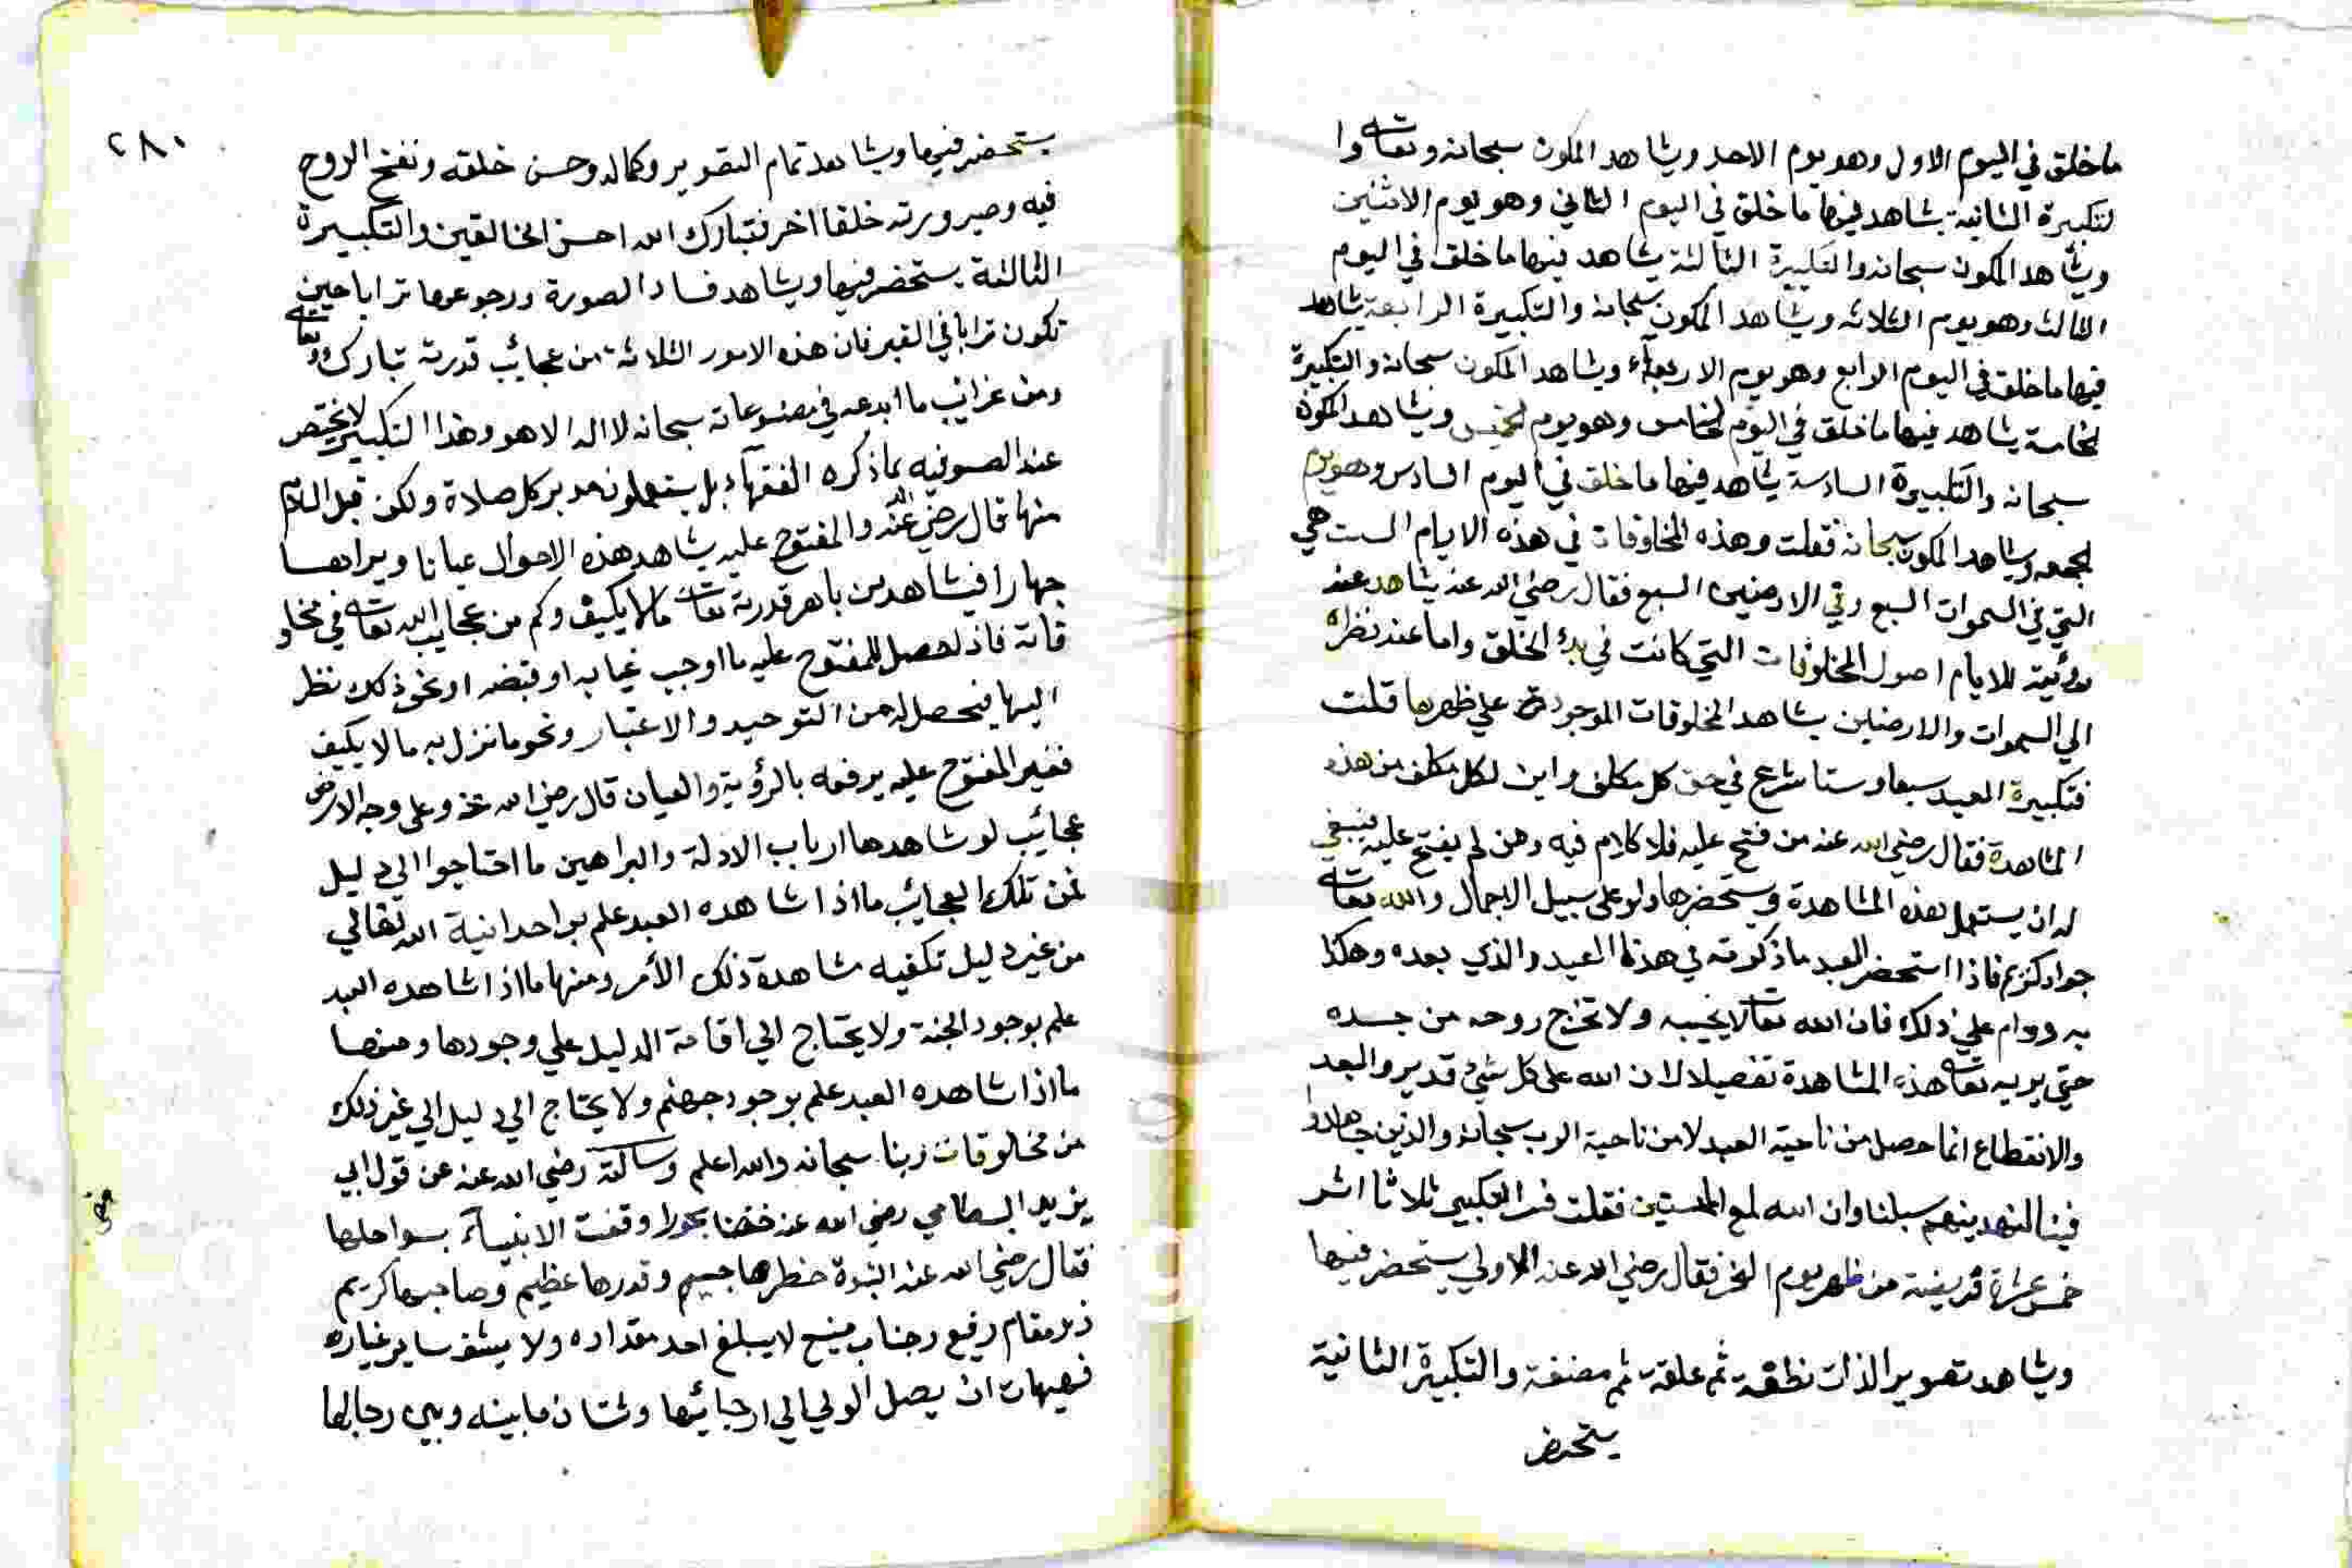 ما خلق في اليوم الاول وهو يوم الاحد ويشاهد المكون سبحانه وتعالى وا
لتكبيرة الثانية يشاهد فيها ما خلق في اليوم الثاني وهو يوم الاثنين
ويشاهد المكون سبحانه والتكبيرة الثالثة يشاهد فيها ما خلق في اليوم
الثالث وهو يوم الثلاثه ويشاهد المكون سبحانه والتكبيرة الرابعة يشاهد
فيها ما خلق في اليوم الرابع وهو يوم الاربعآء ويشاهد المكون سبحانه والتكبيرة
لخامسة يشاهد فيها ما خلق في اليوم لخامس وهو يوم لخميس ويشاهد المكون
سبحانه والتكبيرة السادسة يشاهد فيها ما خلق في اليوم السادس وهو يوم
لجمعه ويشاهد المكون سبحانه فقلت وهذه المخلوقات في هذه الايام الست هي
التي في السموات السبع وفي الارضين السبع فقال رضي الله عنه يشاهد عند
رؤيته للايام اصول المخلوقات التي كانت في بدء الخلق واما عند نظره
الي السموات والارضين يشاهد المخلوقات الموجودة علي ظهرها قلت
فتكبيرة العيد سبعا وستا شرع في حق كل مكلف واين لكل مكلف من هذه
المشاهدة فقال رضي الله عنه من فتح عليه فلا كلام فيه ومن لم يفتح عليه فينبغي
له ان يستعمل هذه المشاهدة ويستحضرها ولو على سبيل الاجمال والله تعالى
جواد كريم فاذا استحضر العبد ما ذكرته في هذا العيد والذي بعده وهكذا
به ودوام علي ذلك فان الله تعالى لا يخيبه ولا تخرج روحه من جسده
حتي يريه تعالى هذه المشاهدة تفصيلا لان الله على كل شيء قدير والبعد
والانقطاع انما حصل من ناحية العبد لا من ناحية الرب سبحانه والذين جاهدوا
فينا لنهدينهم سبلنا وان الله لمع المحسنين فقلت فسر التكبير ثلاثا اثر
خمس عشرة فريضة من ظهر يوم النحر فقال رضي الله عنه الاولي يستحضر فيها
ويشاهد تصوير الذات نطفة ثم علقة ثم مضغة والتكبيرة الثانية
يستحضر
٢٨٠
يستحضر فيها ويشاهد تمام التصوير وكماله وحسن خلقه ونفخ الروح
فيه وصيرورته خلقا اخر فتبارك الله احسن الخالقين والتكبيرة
الثالثة يستحضر فيها ويشاهد فساد الصورة ورجوعها ترابا حين
تكون ترابا في القبر فان هذه الامور الثلاثة من عجائب قدرته تبارك وتعالى
ومن غرائب ما ابدعه في مصنوعاته سبحانه لا اله الا هو وهذا التكبير لا يختص
عند الصوفيه بما ذكره الفقهآء بل يستعملونه دبر كل صلاة ولكن قبل السلام
منها قال رضي الله عنه والمفتوح عليه يشاهد هذه الاحوال عيانا ويراها
جهارا فيشاهد من باهر قدرته تعالى مالا يكيف وكم من عجايب الله تعالى في مخلو
قاته فاذا حصل للمفتوح عليه ما اوجب غيابه او قبضه او نحو ذلك نظر
اليها فيحصل له من التوحيد والاعتبار ونحو ما نزل به ما لا يكيف
فغير المفتوح عليه يرفعه بالرؤية والعيان قال رضي الله عنه وعلى وجه الارض
عجائب لو شاهدها ارباب الادلة والبراهين ما احتاجوا الي دليل
فمن تلك العجائب ما اذا شاهده العبد علم بواحدانية الله تعالي
من غير دليل تكفيه مشاهدة ذلك الأمر ومنها ما اذا شاهده العبد
علم بوجود الجنة ولا يحتاج الي اقامة الدليل علي وجودها ومنها
ما اذا شاهده العبد علم بوجود جهنم ولا يحتاج الي دليل الي غير ذلك
من مخلوقات ربنا سبحانه والله اعلم وسالته رضي الله عنه عن قول ابي
يزيد البسطامي رضي الله عنه خضنا بحورا وقفت الانبيآء بسواحلها
فقال رضي الله عنه النبوة خطرها جسيم وقدرها عظيم وصاحبها كريم
ذو مقام رفيع وجناب منيع لا يبلغ احد مقداره ولا يشق ساير غباره
فهيهات ان يصل الولي الي ارجائها وشتان ما بينه وبين رجالها